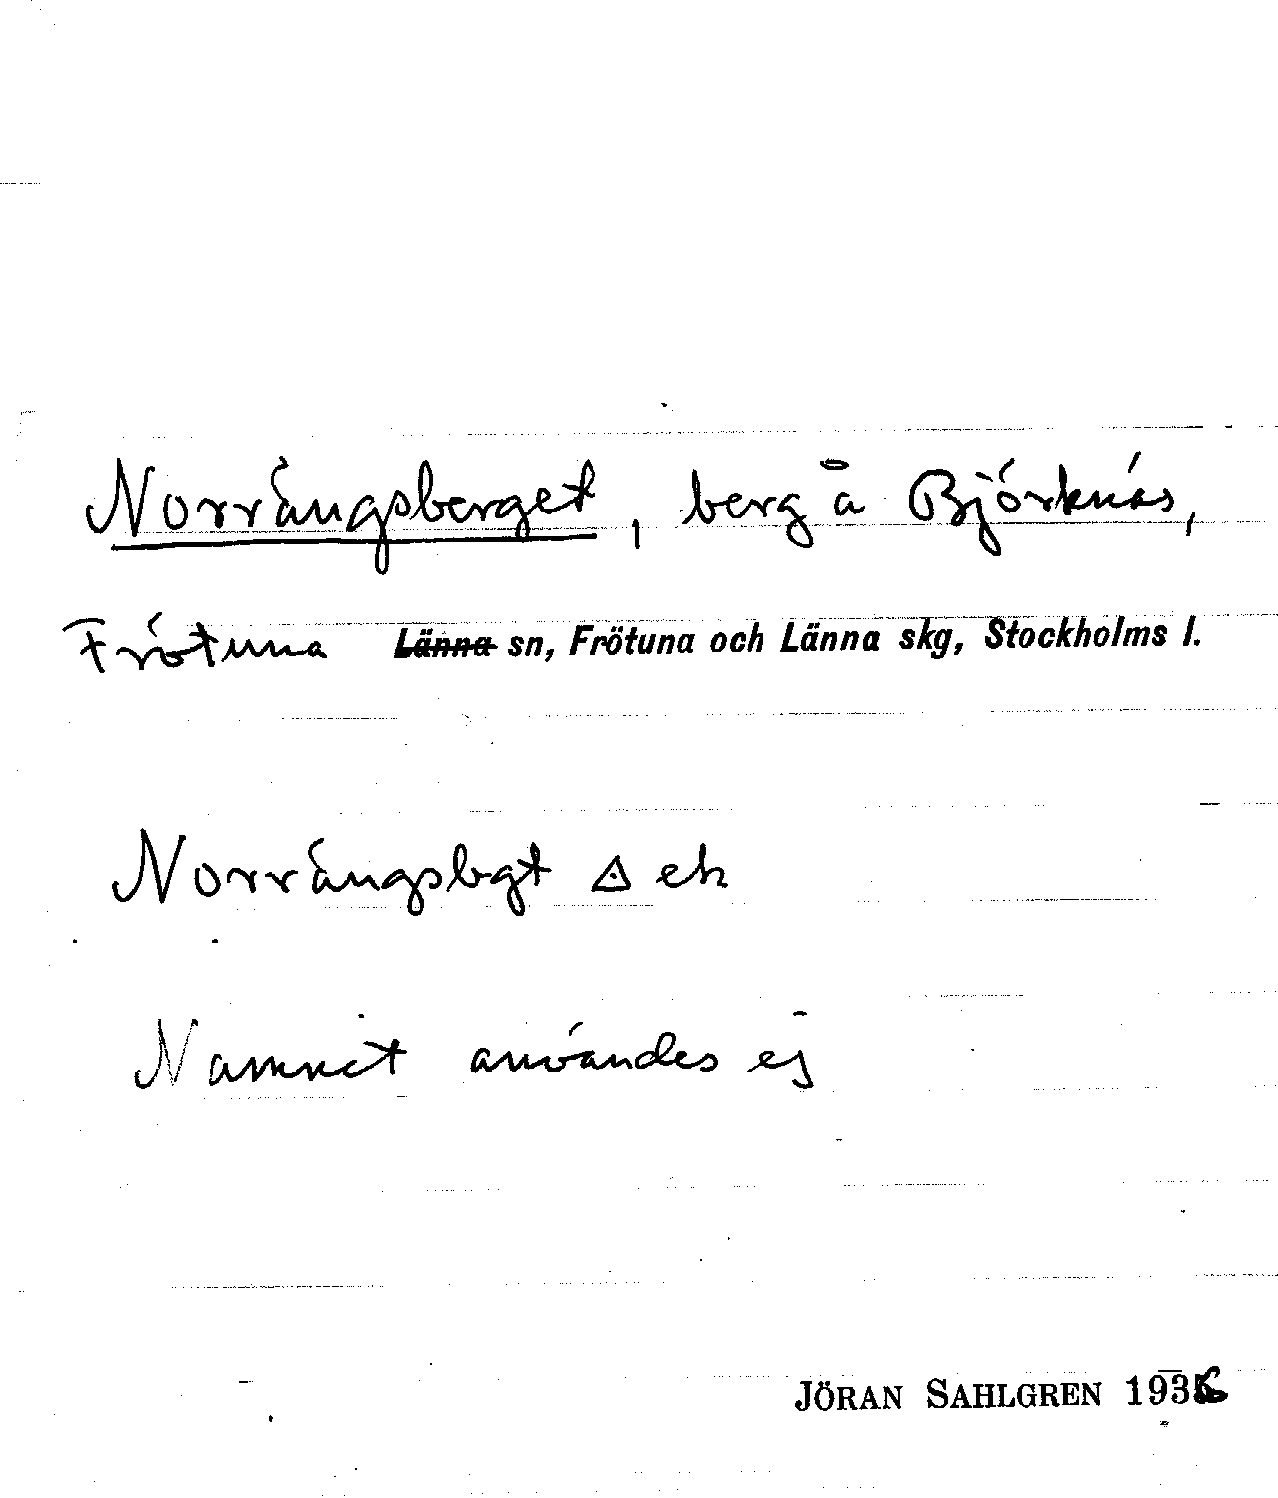 Norrängsberget, berg å Björknäs,
Frötuna Länna sn, Frötuna och Länna skg, Stockholms l.
Norrängsbgt ek
Namnet användes ej
JÖRAN SAHLGREN 1936